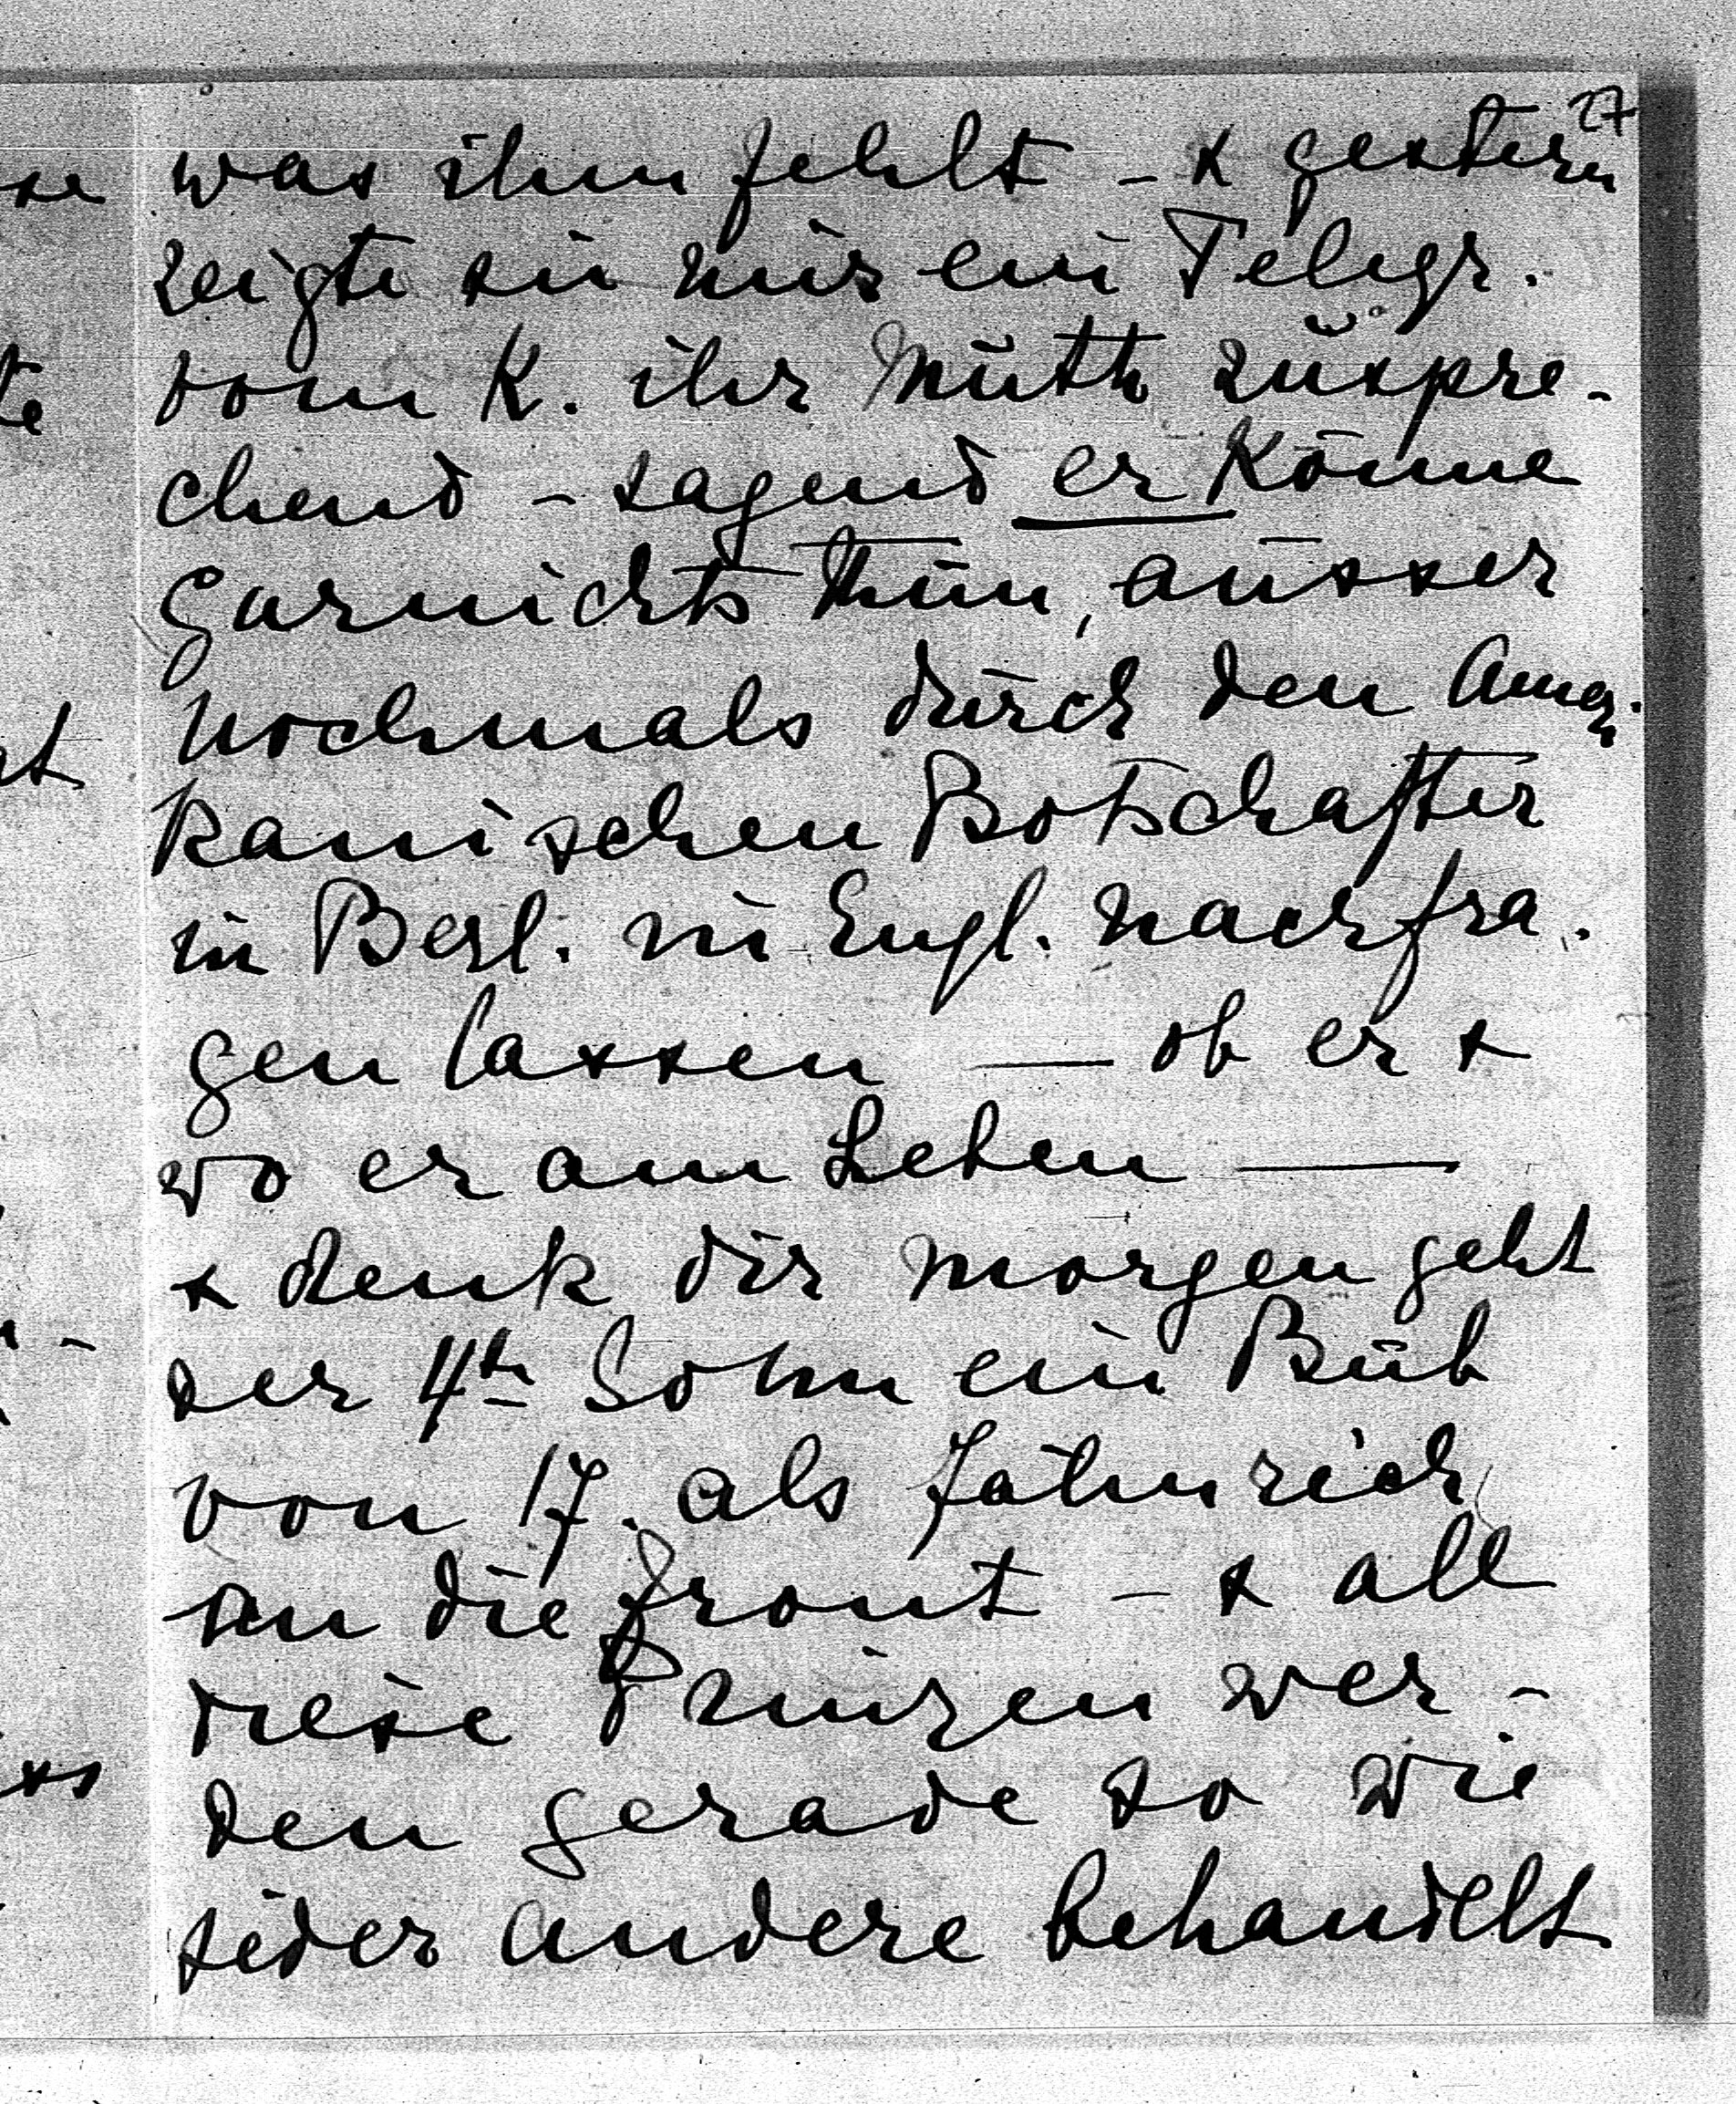 27
was ihm fehlt - & gestern
zeigte sie mir ein Telegr.
vom K. ihr Muth zuspre-
chend - sagend er könne
garnichts thun, ausser
nochmals durch den Ameri-
kanischen Botschafter
in Berl. in Engl. nachfra-
gen lassen — ob er &
wo er am Leben —
& denk dir morgen geht
der 4te Sohn ein Bub
von 17. als Fähnrich
an die Front - & all
diese Prinzen wer-
den gerade so wie
jeder andere behandelt